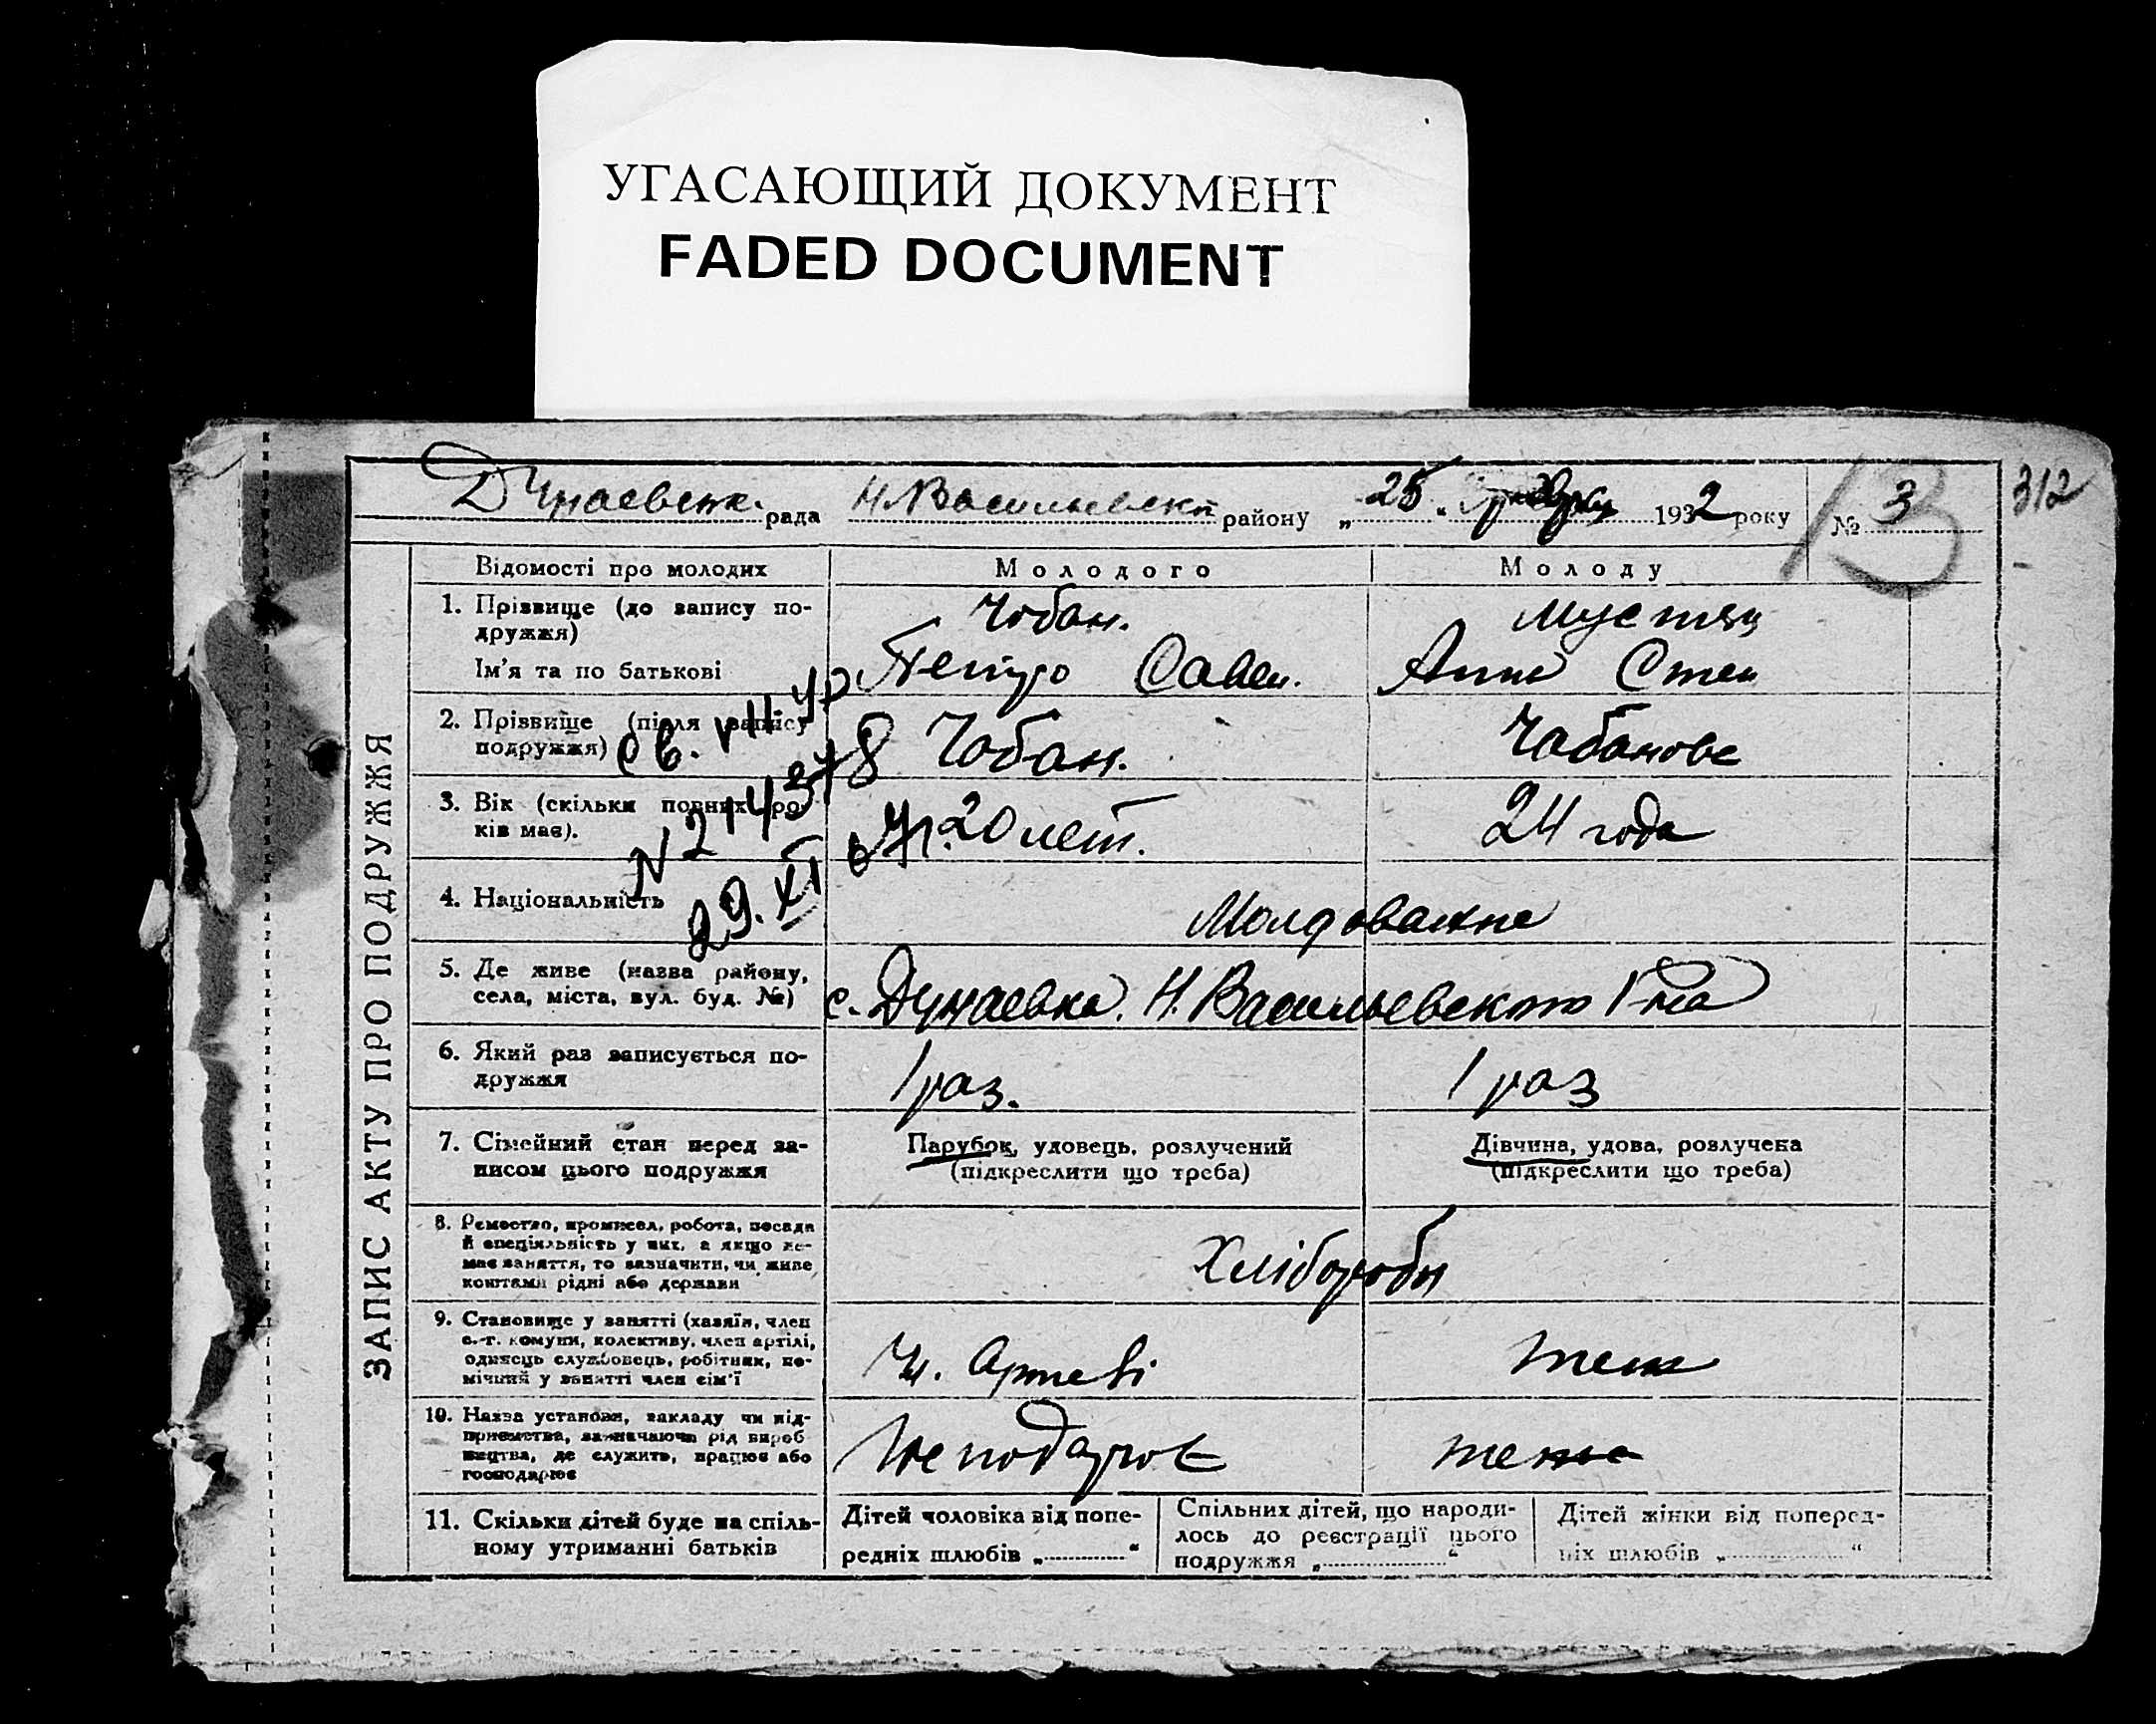 УГАСАЮЩИЙ ДОКУМЕНТ
FADED DOCUMENT
312
Дунаевськ. рада Н.Васильевськ району „25“ 1932 року № 3
13
ЗАПИС АКТУ ПРО ПОДРУЖЖЯ
Відомості про молодих Молодого Молоду
1. Прізвище (до запису по-
дружжя)
Чобан. Мустяц
Ім'я та по батькові
Петро Савел. Анна Степ
2. Прізвище (після запису
подружжя)
Чобан. Чабанова
св. VII-ур
N 2143478
29.XI 67г.
3. Вік (скільки повних ро-
ків має).
20 лет. 24 года
4. Національність
Молдоване
5. Де живе (назва району,
села, міста, вул. буд. №)
с. Дунаевка. Н.Васильевского Р-на
6. Який раз записується по-
дружжя
1 раз. 1 раз
7. Сімейний стан перед за-
писом цього подружжя
Парубок, удовець, розлучений
(підкреслити що треба)
Дівчина, удова, розлучена
(підкреслити що треба)
8. Ремество, промисел, робота, посада
й спеціяльність у них, а якщо не-
має заняття, то зазначити, чи живе
коштами рідні або держави
Хлібороби
9. Становище у занятті (хазяїн, член
с.-г. комуни, колективу, член артілі,
одинець службовець, робітник, по-
мічний у занятті член сім'ї
Чл. Артелі теж
10. Назва установи, закладу чи під-
приємства, зазначаючи рід вироб
ництва, де служить, працює або
господарює
теж
11. Скільки дітей буде на спіль-
ному утриманні батьків
Дітей чоловіка від попе-
редніх шлюбів „ “
Спільних дітей, що народи-
лось до реєстрації цього
подружжя „ “
Дітей жінки від поперед-
ніх шлюбів „ “